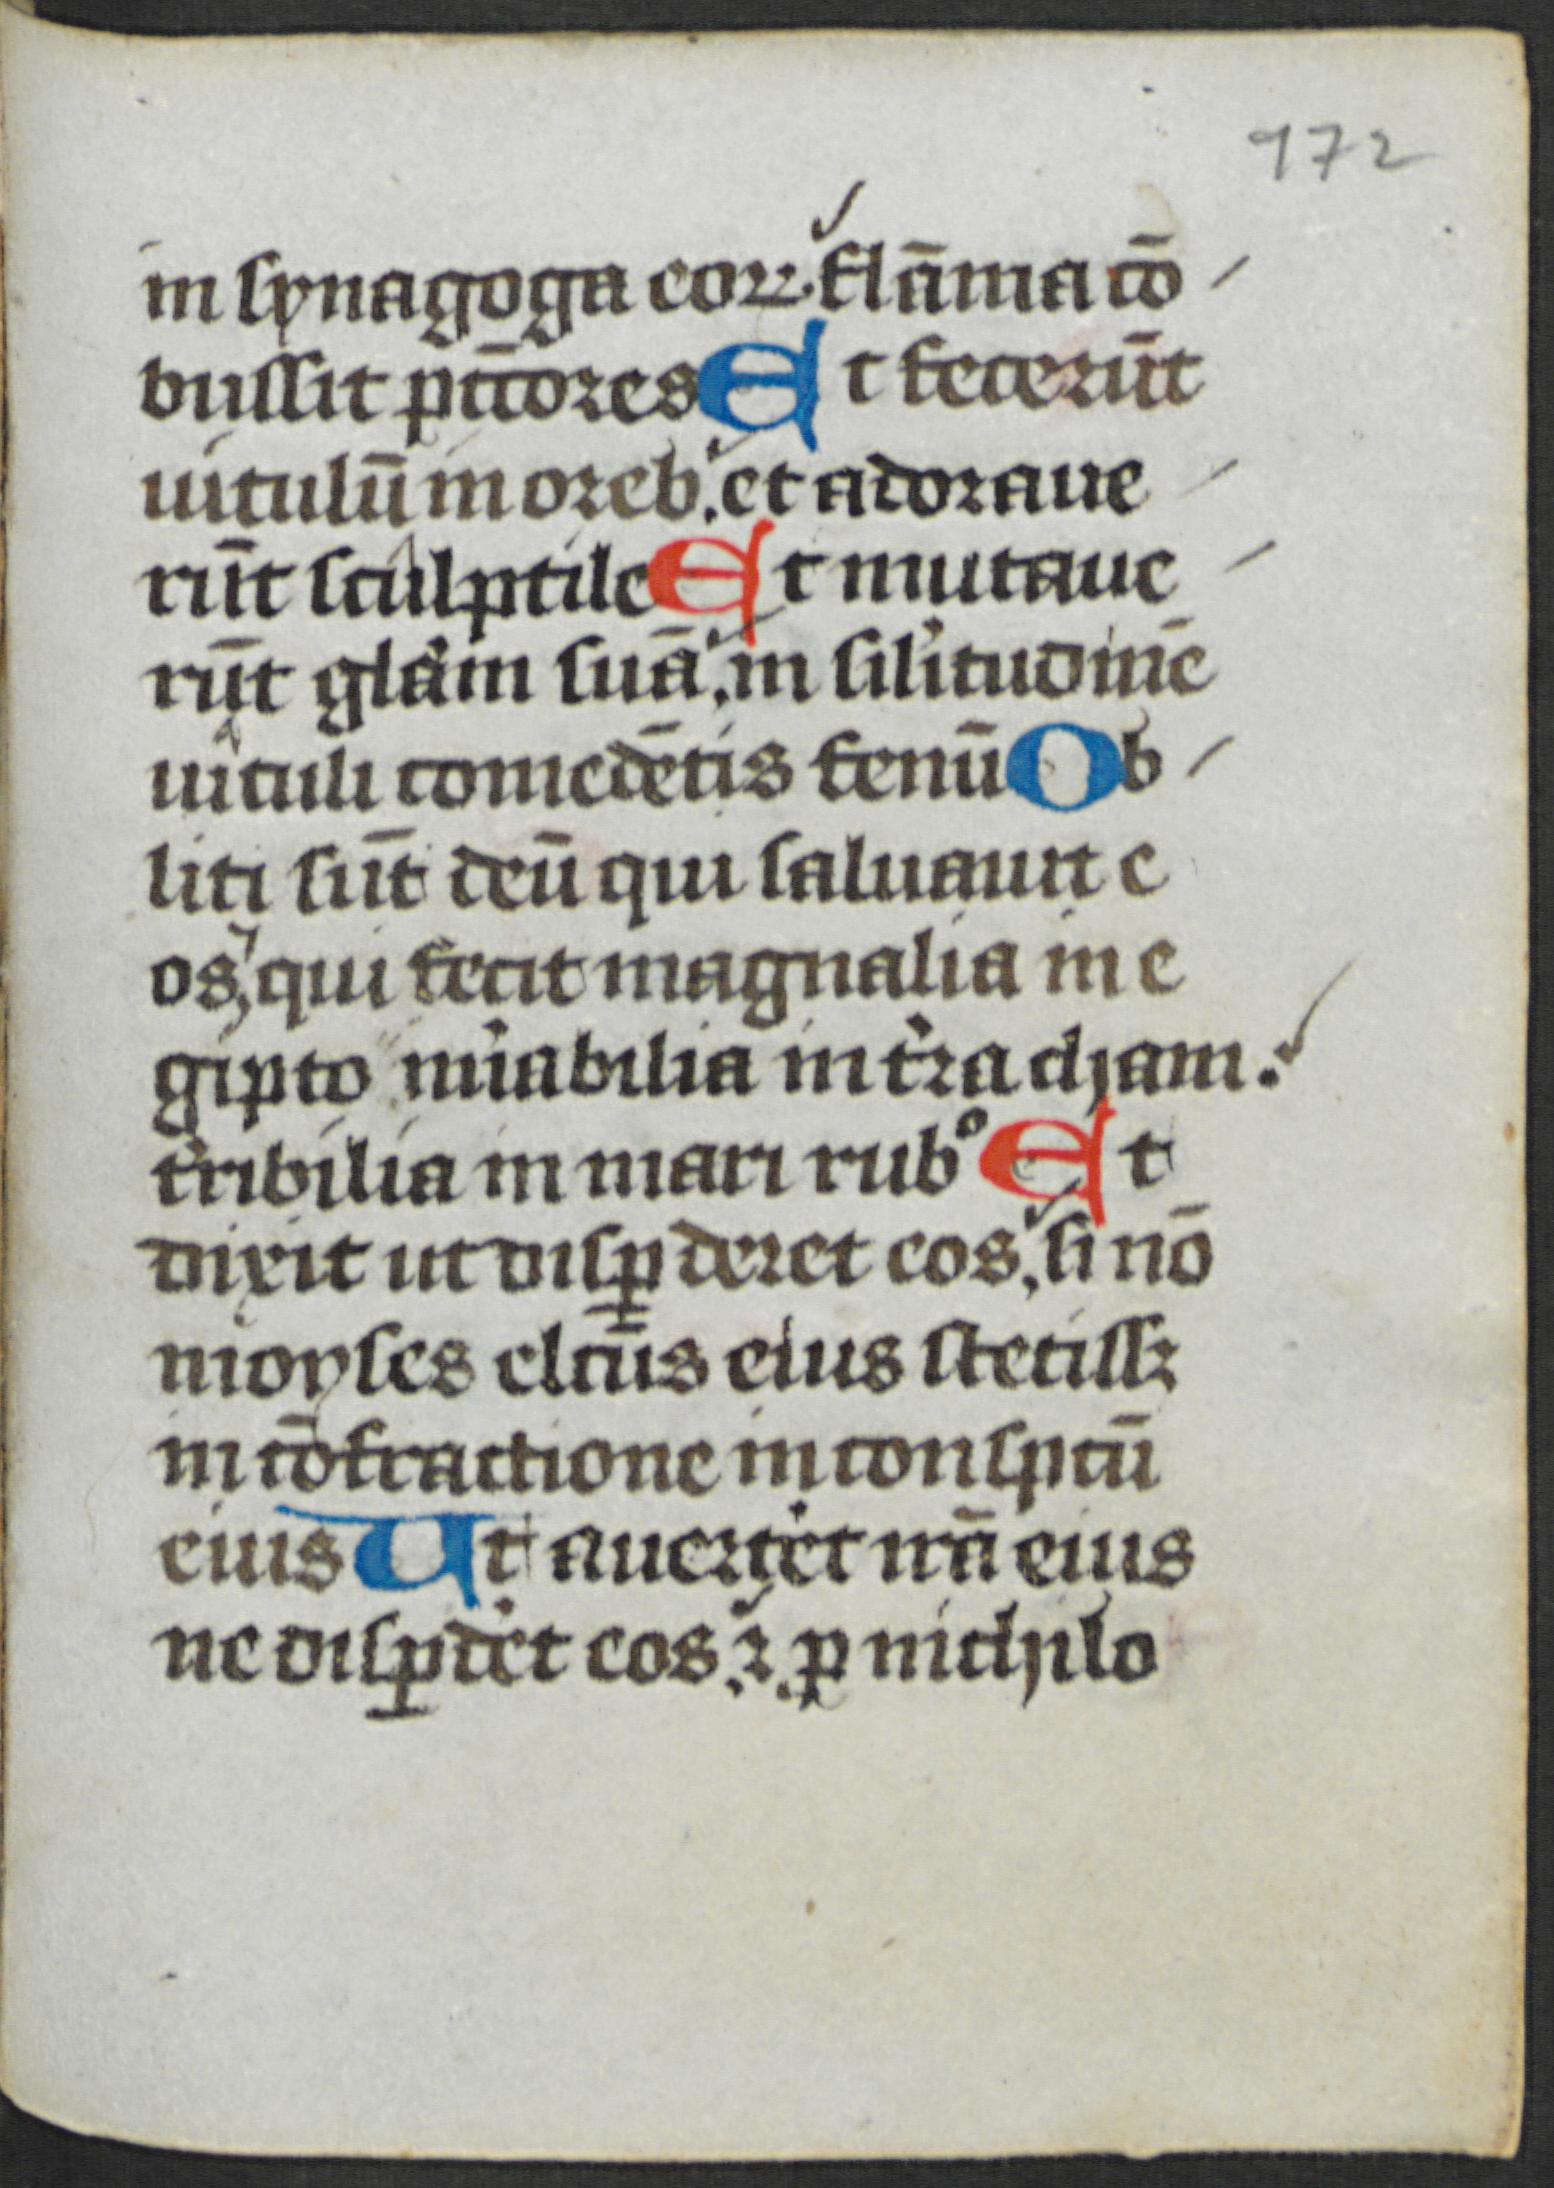 172
in synagoga eoꝝ. flāma cō
bussit pctōres Et fecerūt
uitulū in oreb. et adoraue
rūt sculptile Et mutaue
rūt głam suā. in silitudinē
uituli comedētis fenū Ob
liti sūt deū qui saluauit e
os, qui fecit magnalia in e
gipto mirabilia in t̾ra cham.
t̾ribilia in mari rubº Et
dixit ut disꝑderet eos. si nō
moyses elcūs eius stetissꝫ
in cōfractione in conspctū
eius Ut auert̾et irā eius
ne disꝑd̾et eos. ⁊ ꝓ nichilo